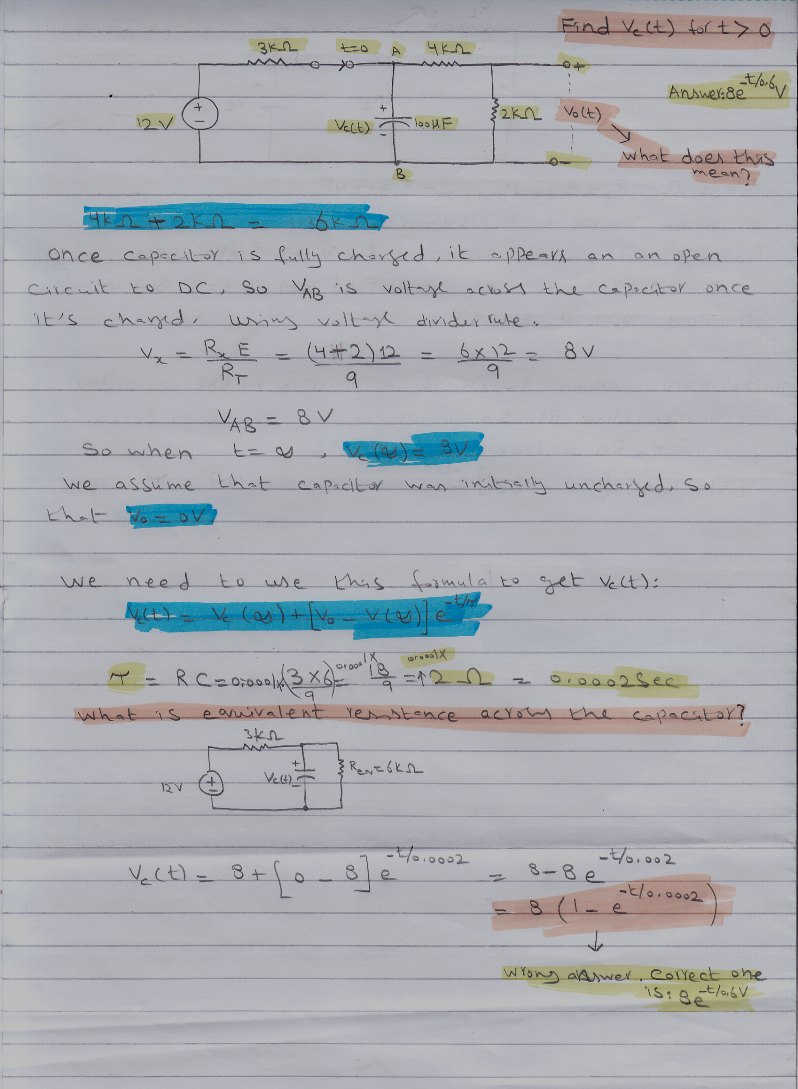 Find Vc(t) for t > 0
3KΩ t=0 A 4KΩ
o+
Answer: 8e^-t/0.6 V
+
12V
+
Vc(t) 100μF
-
2KΩ
Vo(t)
o-
B
What does this
mean?
4KΩ + 2KΩ = 6KΩ
Once capacitor is fully charged, it appears an an open
circuit to DC, So V_AB is voltage across the capacitor once
it's charged. Using voltage divider rule.
Vx = Rx E / R_T = (4+2)12 / 9 = 6×12 / 9 = 8V
V_AB = 8V
So when t= ∞ , Vc(∞) = 8V
We assume that capacitor was initially uncharged. So
that Vo = 0V
We need to use this formula to get Vc(t):
Vc(t) = Vc(∞) + [Vo - V(∞)] e^-t/τ
τ = RC = 0.0001×(3×6 / 9) = 0.0001× 18 / 9 = 0.0001× 2Ω = 0.0002 Sec
What is equivalent resistence across the capacitor?
3KΩ
12V
+
Vc(t)
-
Req = 6KΩ
Vc(t) = 8 + [0 - 8] e^-t/0.0002 = 8-8e^-t/0.002
= 8 (1 - e^-t/0.0002)
Wrong answer. Correct one
is: 8e^-t/0.6 V